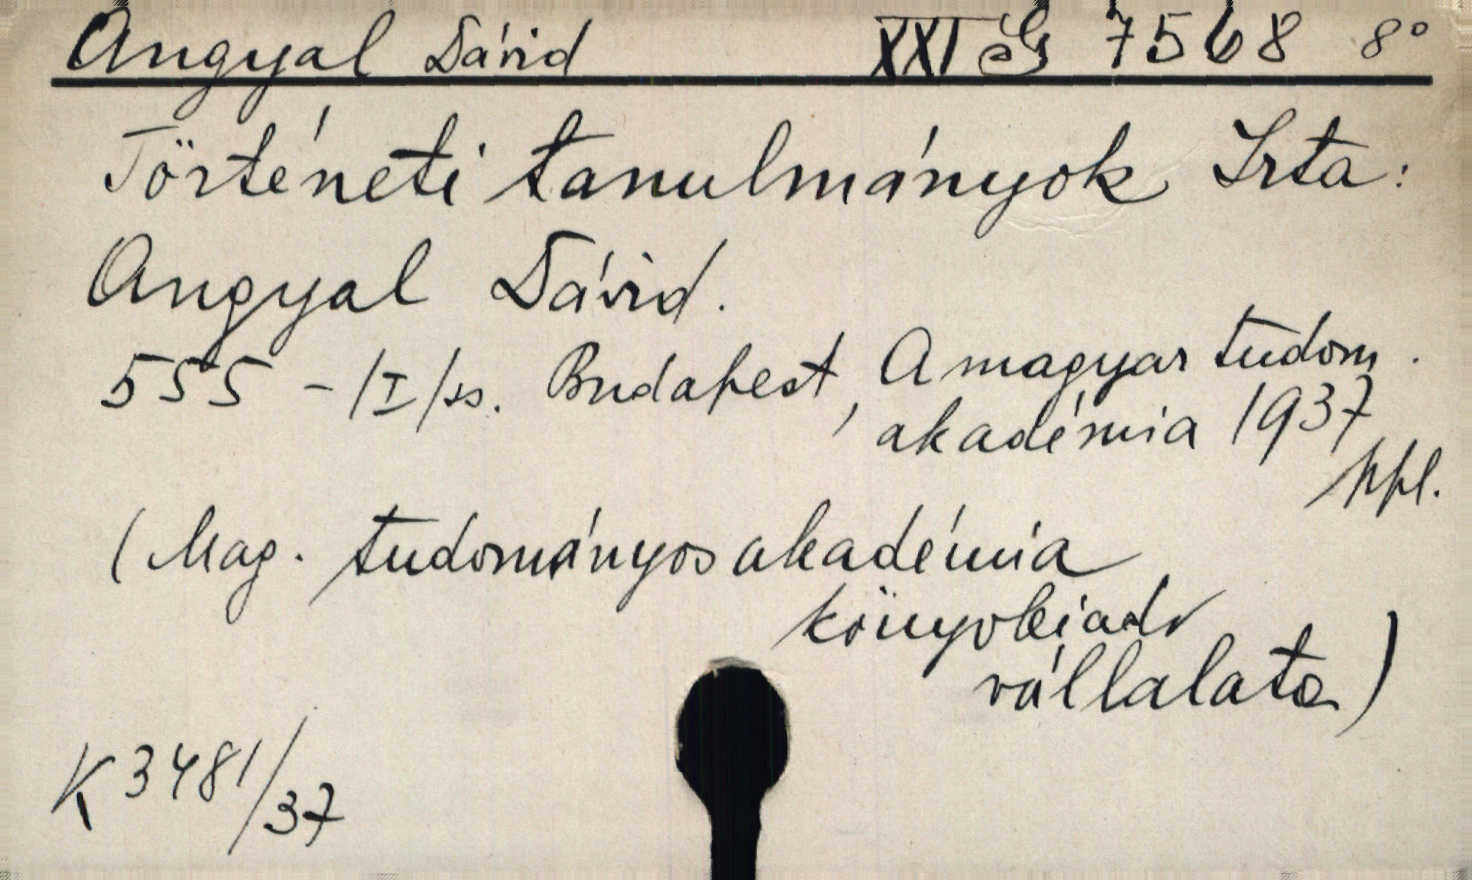 Angyal Dávid XXI G 7568 8°
Történeti tanulmányok Irta:
Angyal Dávid.
555 - /I/ ss. Budapest, A magyar tudom.
akadémia 1937
ppl.
(Mag. tudományos akadémia
könyvkiadó
vállalata)
K 3481/37